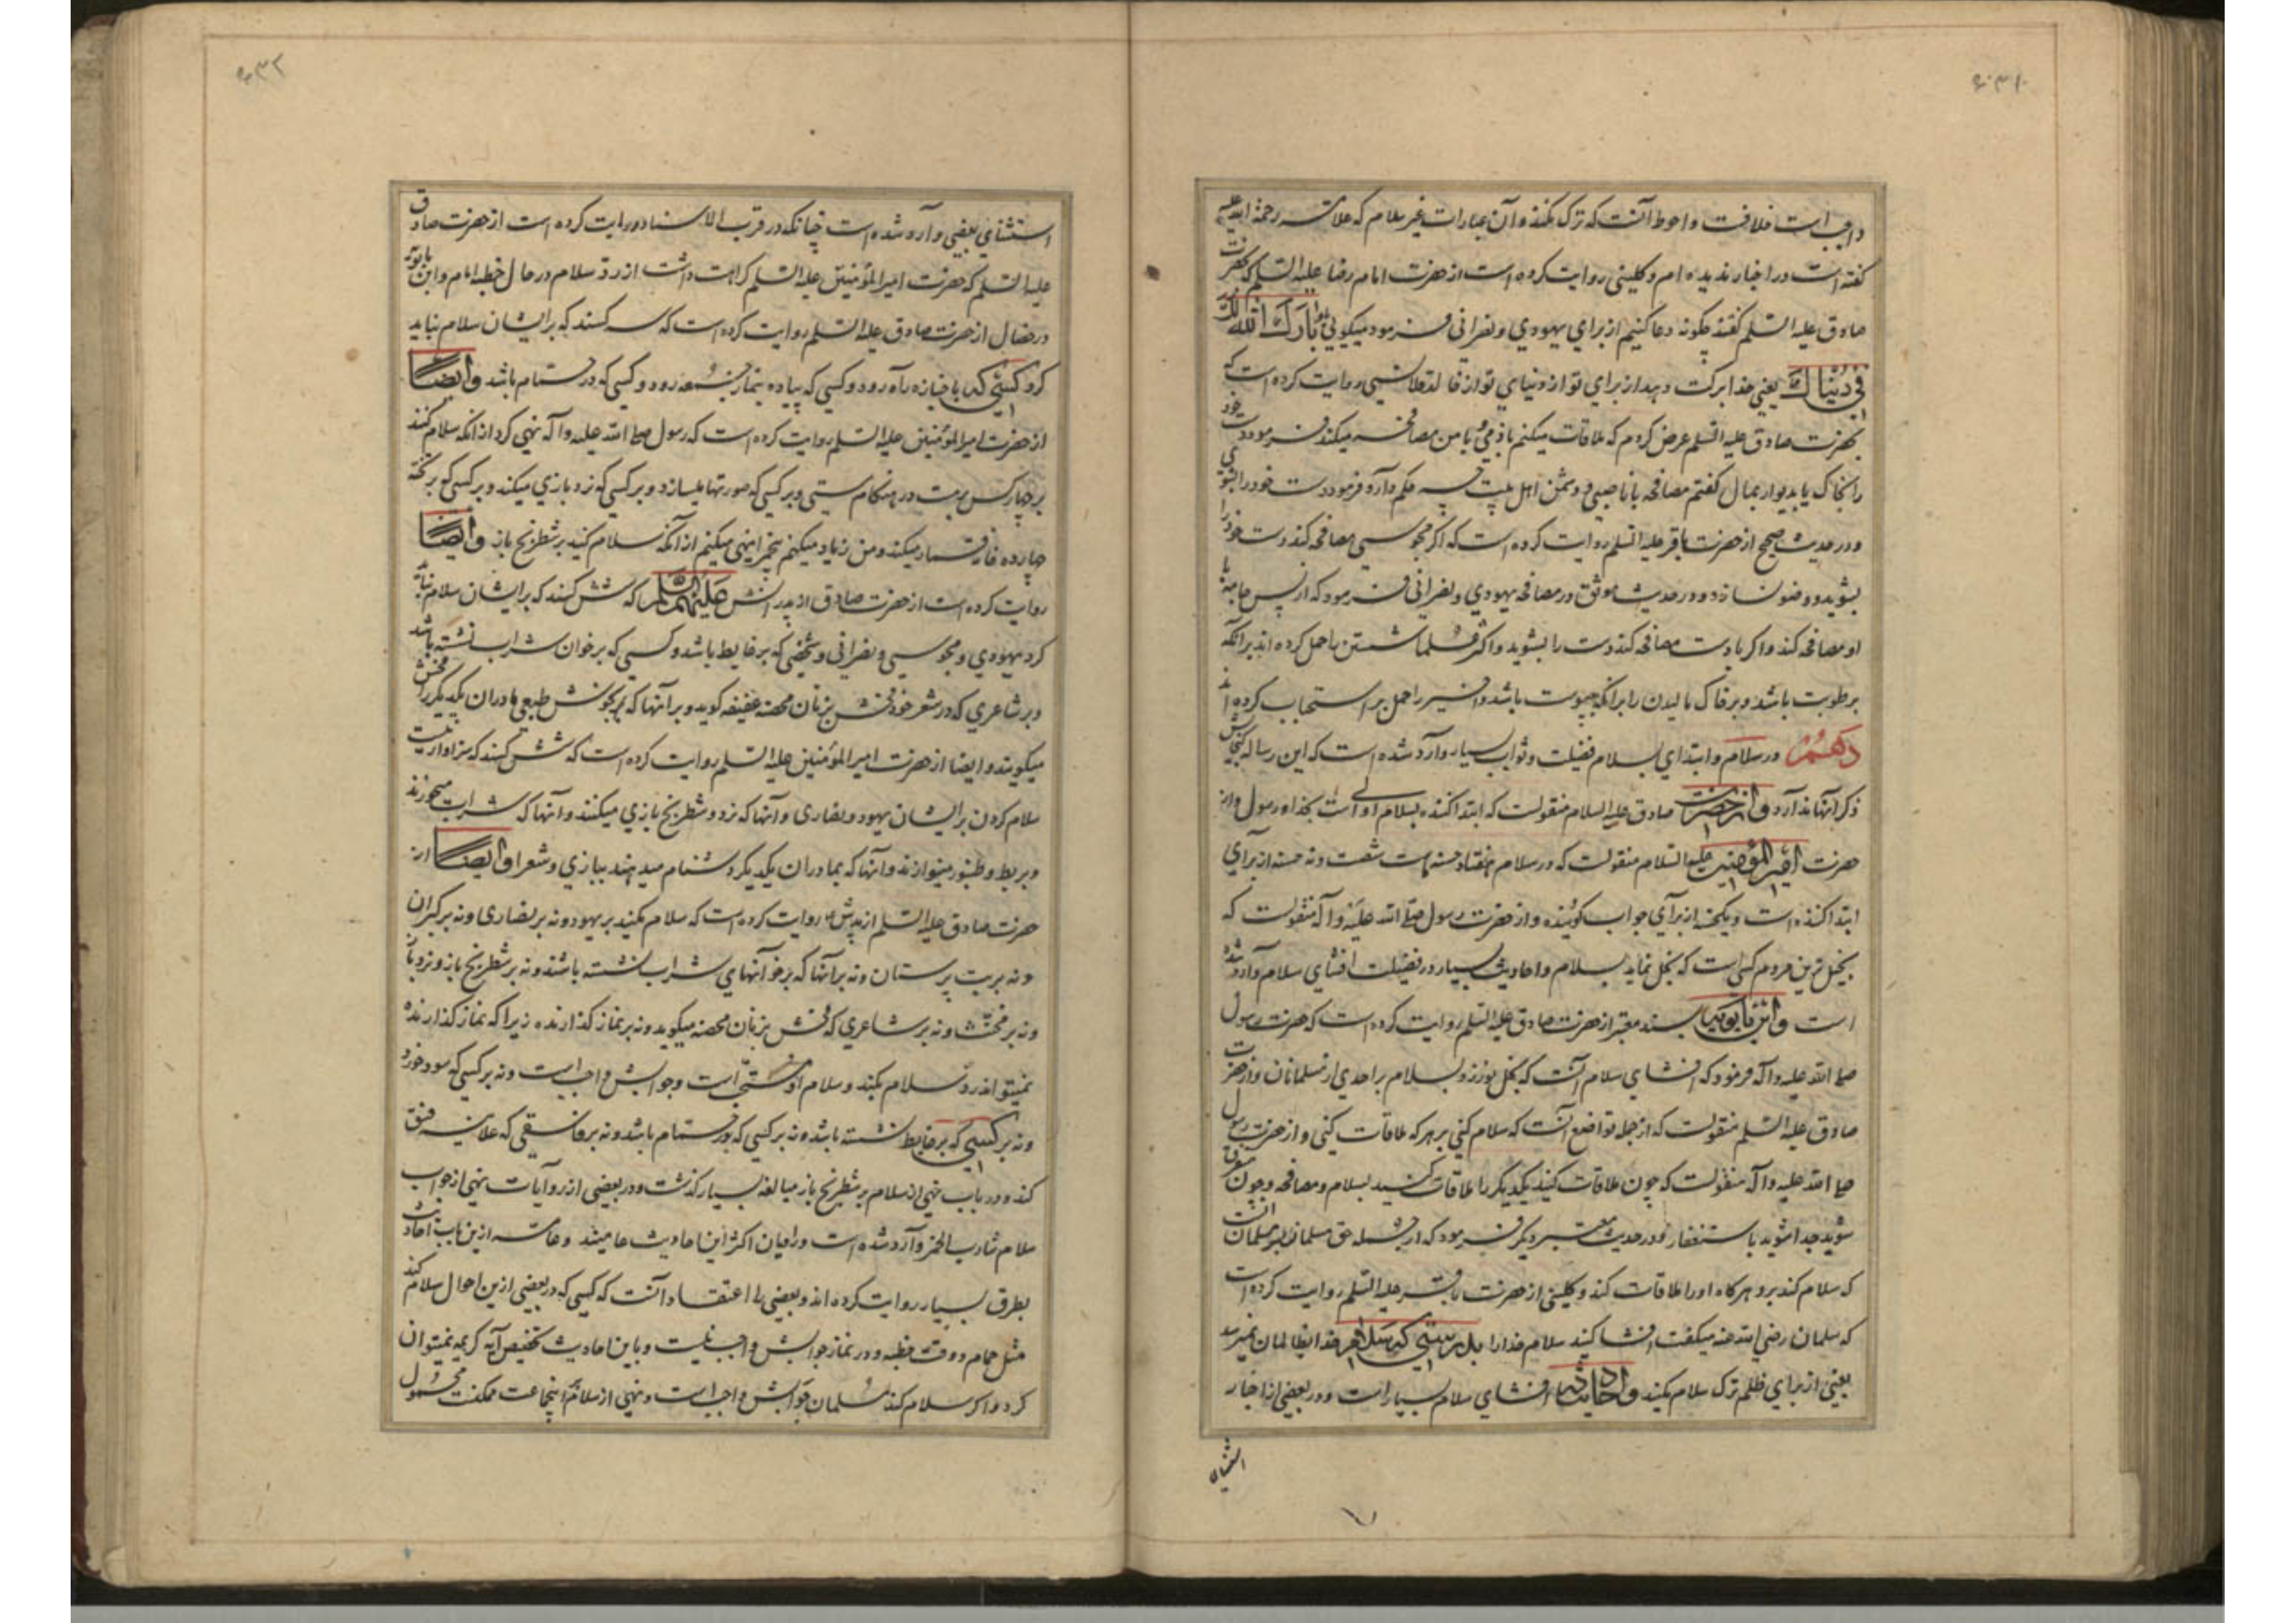 ۶۳۱
واجبست خلافست و احوط آنست که ترک نکنند و آن عبارات غیر سلام که علامه رحمة الله علیه
گفته است در اخبار ندیده ام و کلینی روایت کرده است از حضرت امام رضا علیه السلم که بحضرت
صادق علیه السلم گفتند چگونه دعا کنیم از برای یهودی و نصرانی فرمود میگویی بارَکَ الله لکَ
فی دُنیاکَ یعنی خدا برکت دهد از برای تو از دنیای تو از خالد قلانسی روایت کرده است که
بحضرت صادق علیه السلم عرض کردم که ملاقات میکنم با ذمی و با من مصافحه میکند فرمود دست خود
را بخاک یا بدیوار بمال گفتم مصافحه با ناصبی و دشمن اهل بیت چه حکم دارد فرمود دست خود را بشوی
و در حدیث صحیح از حضرت باقر علیه السلم روایت کرده است که اگر مجوسی مصافحه کند دست خود را
بشوید و وضو نسازد و در حدیث موثق در مصافحه یهودی و نصرانی فرمود که از پس جامه با
او مصافحه کند و اگر با دست مصافحه کند دست را بشوید و اکثر علما شستن را حمل کرده اند بر آنکه
برطوبت باشد و بر خاک مالیدن را بر آنکه بیبوست باشد و اخیر را حمل بر استحباب کرده اند
دهم در سلام و ابتدای بسلام فضیلت و ثواب بسیار وارد شده است که این رساله گنجایش
ذکر آنها ندارد و از حضرت صادق علیه السلام منقولست که ابتدا کننده بسلام اولی است بخدا و رسول و از
حضرت امیر المؤمنین علیه السلام منقولست که در سلام هفتاد حسنه است شصت و نه حسنه از برای
ابتدا کننده است و یکحسنه از برای جواب گوینده و از حضرت رسول صلی الله علیه و آله منقولست که
بخیل ترین مردم کسی است که بخل نماید بسلام و احادیث بسیار در فضیلت افشای سلام وارد شده
است و ابن بابویه بسند معتبر از حضرت صادق علیه السلم روایت کرده است که حضرت رسول
صلی الله علیه و آله فرمود که افشای سلام آنست که بخل نورزد بسلام بر احدی از مسلمانان و از حضرت
صادق علیه السلم منقولست که از جمله تواضع آنست که سلام کنی بر هر که ملاقات کنی و از حضرت رسول
صلی الله علیه و آله منقولست که چون ملاقات کنید یکدیگر را ملاقات کنید بسلام و مصافحه و چون متفرق
شوید جدا شوید باستغفار و در حدیث معتبر دیگر فرمود که از جمله حق مسلمان بر مسلمان آنست
که سلام کند بر او هرگاه او را ملاقات کند و کلینی از حضرت باقر علیه السلم روایت کرده است
که سلمان رضی الله عنه میگفت افشا کنید سلام خدا را بدرستی که سلام خدا بظالمان نمیرسد
یعنی از برای ظلم ترک سلام مکنید و احادیث افشای سلام بسیار است و در بعضی از اخبار
استثنای
۶۳۲
استثنای بعضی وارد شده است چنانکه در قرب الاسناد روایت کرده است از حضرت صادق
علیه السلم که حضرت امیر المؤمنین علیه السلم کراهت داشت از رد سلام در حال خطبه امام و ابن بابویه
در خصال از حضرت صادق علیه السلم روایت کرده است که سه کسند که بر ایشان سلام نباید
کرد کسی که با جنازه راه رود و کسی که پیاده بنماز جمعه رود و کسی که در حمام باشد و ایضاً
از حضرت امیر المؤمنین علیه السلم روایت کرده است که رسول صلی الله علیه و آله نهی کرد از آنکه سلام کنند
بر چهار کس بر مست در هنگام مستی و بر کسی که صورتها میسازد و بر کسی که نرد بازی میکند و بر کسی که بر تخته
چهارده قمار میکند و من زیاد میکنم پنجم را نهی میکنم از آنکه سلام کنید بر شطرنج باز و ایضاً
روایت کرده است از حضرت صادق از پدرانش علیهم السلم که شش کسند که بر ایشان سلام نباید
کرد یهودی و مجوسی و نصرانی و شخصی که بر غایط باشد و کسی که بر خوان شراب نشسته باشد
و بر شاعری که در شعر خود فحش بزنان محصنه عفیفه گوید و بر آنها که بخوش طبعی مادران یکدیگر را فحش
میگویند و ایضا از حضرت امیر المؤمنین علیه السلم روایت کرده است که شش کسند که سزاوار نیست
سلام کردن بر ایشان یهود و نصاری و آنها که نرد و شطرنج بازی میکنند و آنها که شراب میخورند
و بربط و طنبور مینوازند و آنها که بمادران یکدیگر دشنام میدهند ببازی و شعرا و ایضاً از
حضرت صادق علیه السلم از پدرش روایت کرده است که سلام مکنید بر یهود و نه بر نصاری و نه بر گبران
و نه بر بت پرستان و نه بر آنها که بر خوانهای شراب نشسته باشند و نه بر شطرنج باز و نرد باز
و نه بر مخنث و نه بر شاعری که فحش بزنان محصنه میگوید و نه بر نماز گذارنده زیرا که نماز گذارنده
نمیتواند رد سلام بکند و سلام مستحب است و جوابش واجب است و نه بر کسی که سود خورد
و نه بر کسی که بر غایط نشسته باشد و نه بر کسی که در حمام باشد و نه بر فاسقی که علانیه فسق
کند و در باب نهی از سلام بر شطرنج باز مبالغه بسیار گذشت و در بعضی از روایات نهی از جواب
سلام شارب الخمر وارد شده است و راویان اکثر این احادیث عامیند و عامه ازین باب احادیث
بطرق بسیار روایت کرده اند و بعضی را اعتقاد آنست که کسی که در بعضی ازین احوال سلام کند
مثل حمام و وقت خطبه و در نماز جوابش واجب نیست و باین احادیث تخصیص آیه کریمه نمیتوان
کرد و اگر سلام کند مسلمان جوابش واجب است و نهی از سلام اینجماعت ممکنست محمول